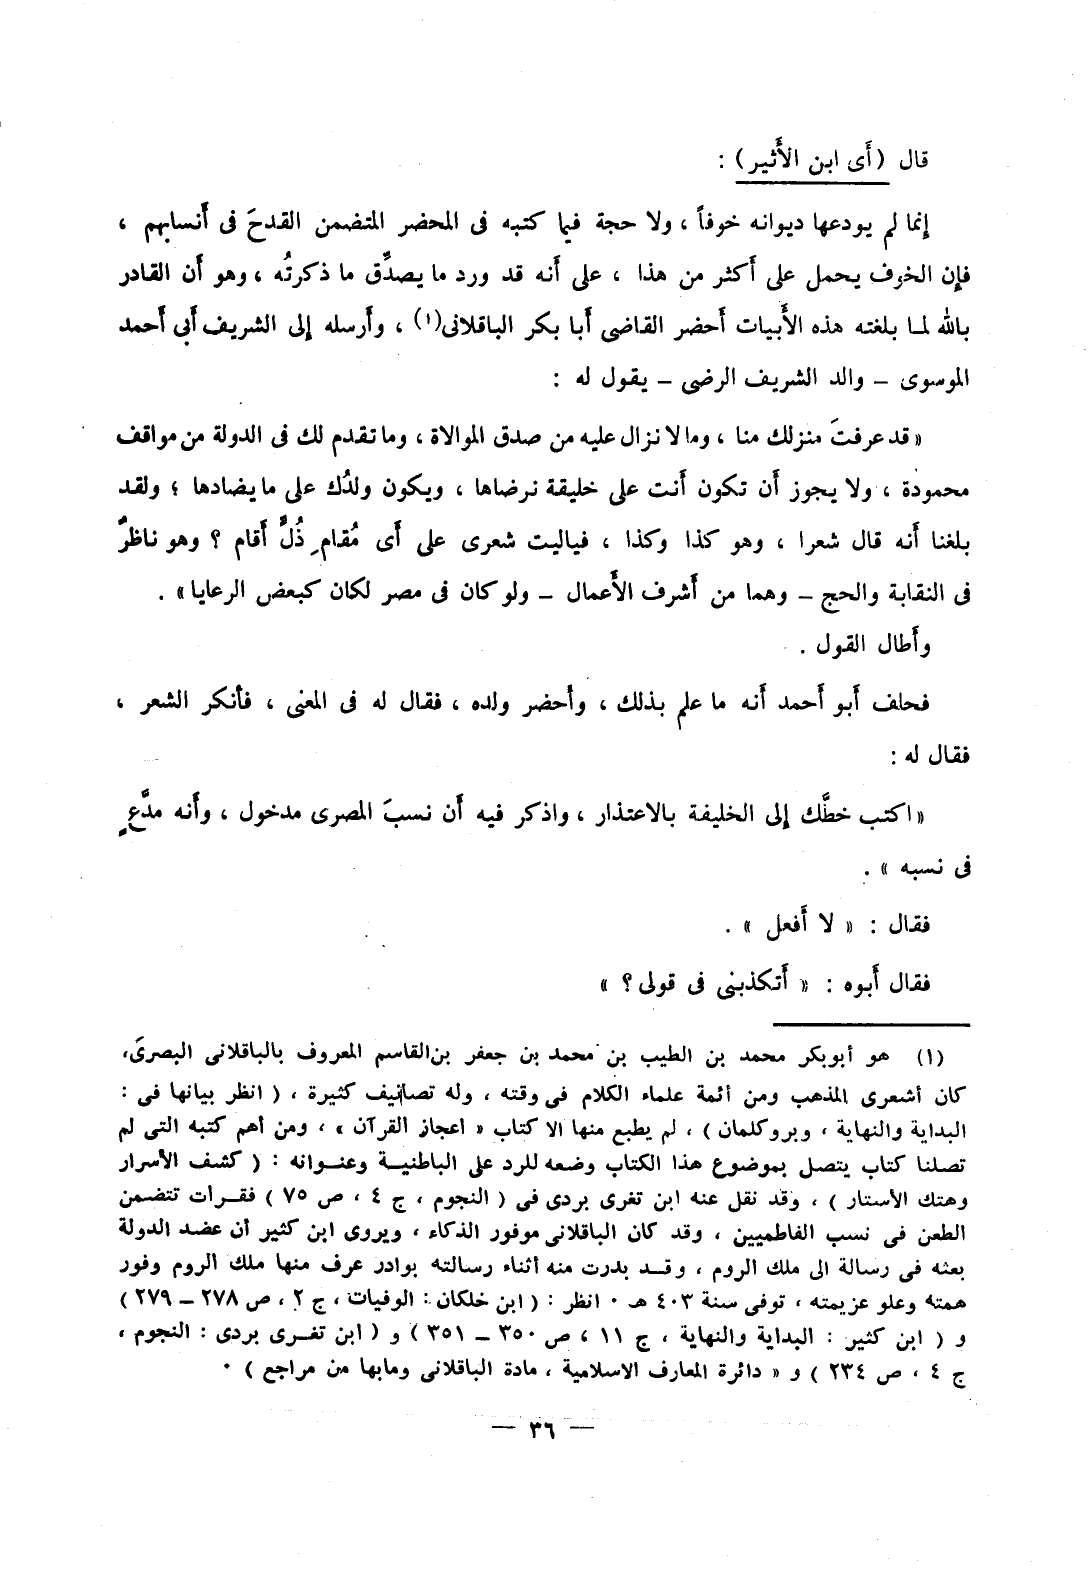 قال (أى ابن الأثير) :
إنما لم يودعها ديوانه خوفاً ، ولا حجة فيما كتبه فى المحضر المتضمن القدحَ فى أنسابهم ،
فإن الخوف يحمل على أكثر من هذا ، على أنه قد ورد ما يصدِّق ما ذكرتُه ، وهو أن القادر
بالله لما بلغته هذه الأبيات أحضر القاضى أبا بكر الباقلانى(١) ، وأرسله إلى الشريف أبى أحمد
الموسوى – والد الشريف الرضى – يقول له :
« قد عرفتَ منزلك منا ، وما لا نزال عليه من صدق الموالاة ، وما تقدم لك فى الدولة من مواقف
محمودة ، ولا يجوز أن تكون أنت على خليقة نرضاها ، ويكون ولدُك على ما يضادها ؛ ولقد
بلغنا أنه قال شعرا ، وهو كذا وكذا ، فياليت شعرى على أى مُقامِ ذُلٍّ أقام ؟ وهو ناظرٌ
فى النقابة والحج – وهما من أشرف الأعمال – ولو كان فى مصر لكان كبعض الرعايا » .
وأطال القول .
فحلف أبو أحمد أنه ما علم بذلك ، وأحضر ولده ، فقال له فى المعنى ، فأنكر الشعر ،
فقال له :
« اكتب خطَّك إلى الخليفة بالاعتذار ، واذكر فيه أن نسبَ المصرى مدخول ، وأنه مدَّعٍ
فى نسبه » .
فقال : « لا أفعل » .
فقال أبوه : « أتكذبنى فى قولى ؟ »
(١) هو أبوبكر محمد بن الطيب بن محمد بن جعفر بن القاسم المعروف بالباقلانى البصرى،
كان أشعرى المذهب ومن أئمة علماء الكلام فى وقته ، وله تصانيف كثيرة ، ( انظر بيانها فى :
البداية والنهاية ، وبروكلمان ) ، لم يطبع منها الا كتاب « اعجاز القرآن » ، ومن أهم كتبه التى لم
تصلنا كتاب يتصل بموضوع هذا الكتاب وضعه للرد على الباطنية وعنوانه : ( كشف الأسرار
وهتك الأستار ) ، وقد نقل عنه ابن تغرى بردى فى ( النجوم ، ج ٤ ، ص ٧٥ ) فقرات تتضمن
الطعن فى نسب الفاطميين ، وقد كان الباقلانى موفور الذكاء ، ويروى ابن كثير أن عضد الدولة
بعثه فى رسالة الى ملك الروم ، وقد بدرت منه أثناء رسالته بوادر عرف منها ملك الروم وفور
همته وعلو عزيمته ، توفى سنة ٤٠٣ هـ ٠ انظر : ( ابن خلكان : الوفيات ، ج ٢ ، ص ٢٧٨ – ٢٧٩ )
و ( ابن كثير : البداية والنهاية ، ج ١١ ، ص ٣٥٠ – ٣٥١ ) و ( ابن تغرى بردى : النجوم ،
ج ٤ ، ص ٢٣٤ ) و « دائرة المعارف الاسلامية ، مادة الباقلانى ومابها من مراجع ) ٠
— ٣٦ —